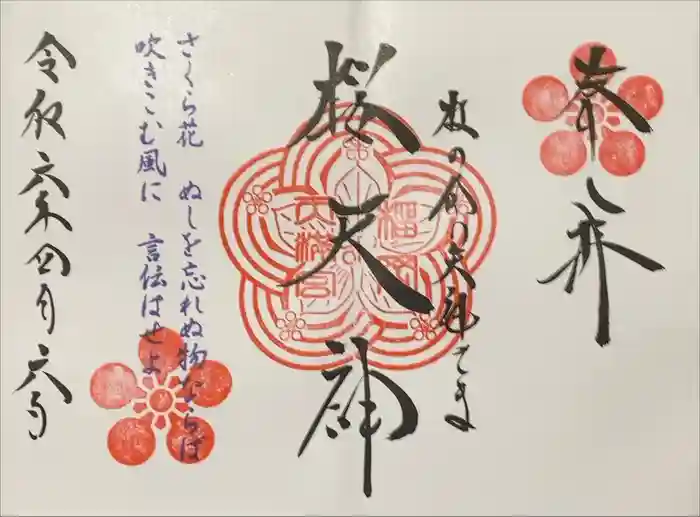 奉拝
桜天神
天満宮
さくら花 ぬしを忘れぬ物ならば
吹きこむ風に 言伝はせよ
令和六年四月六日